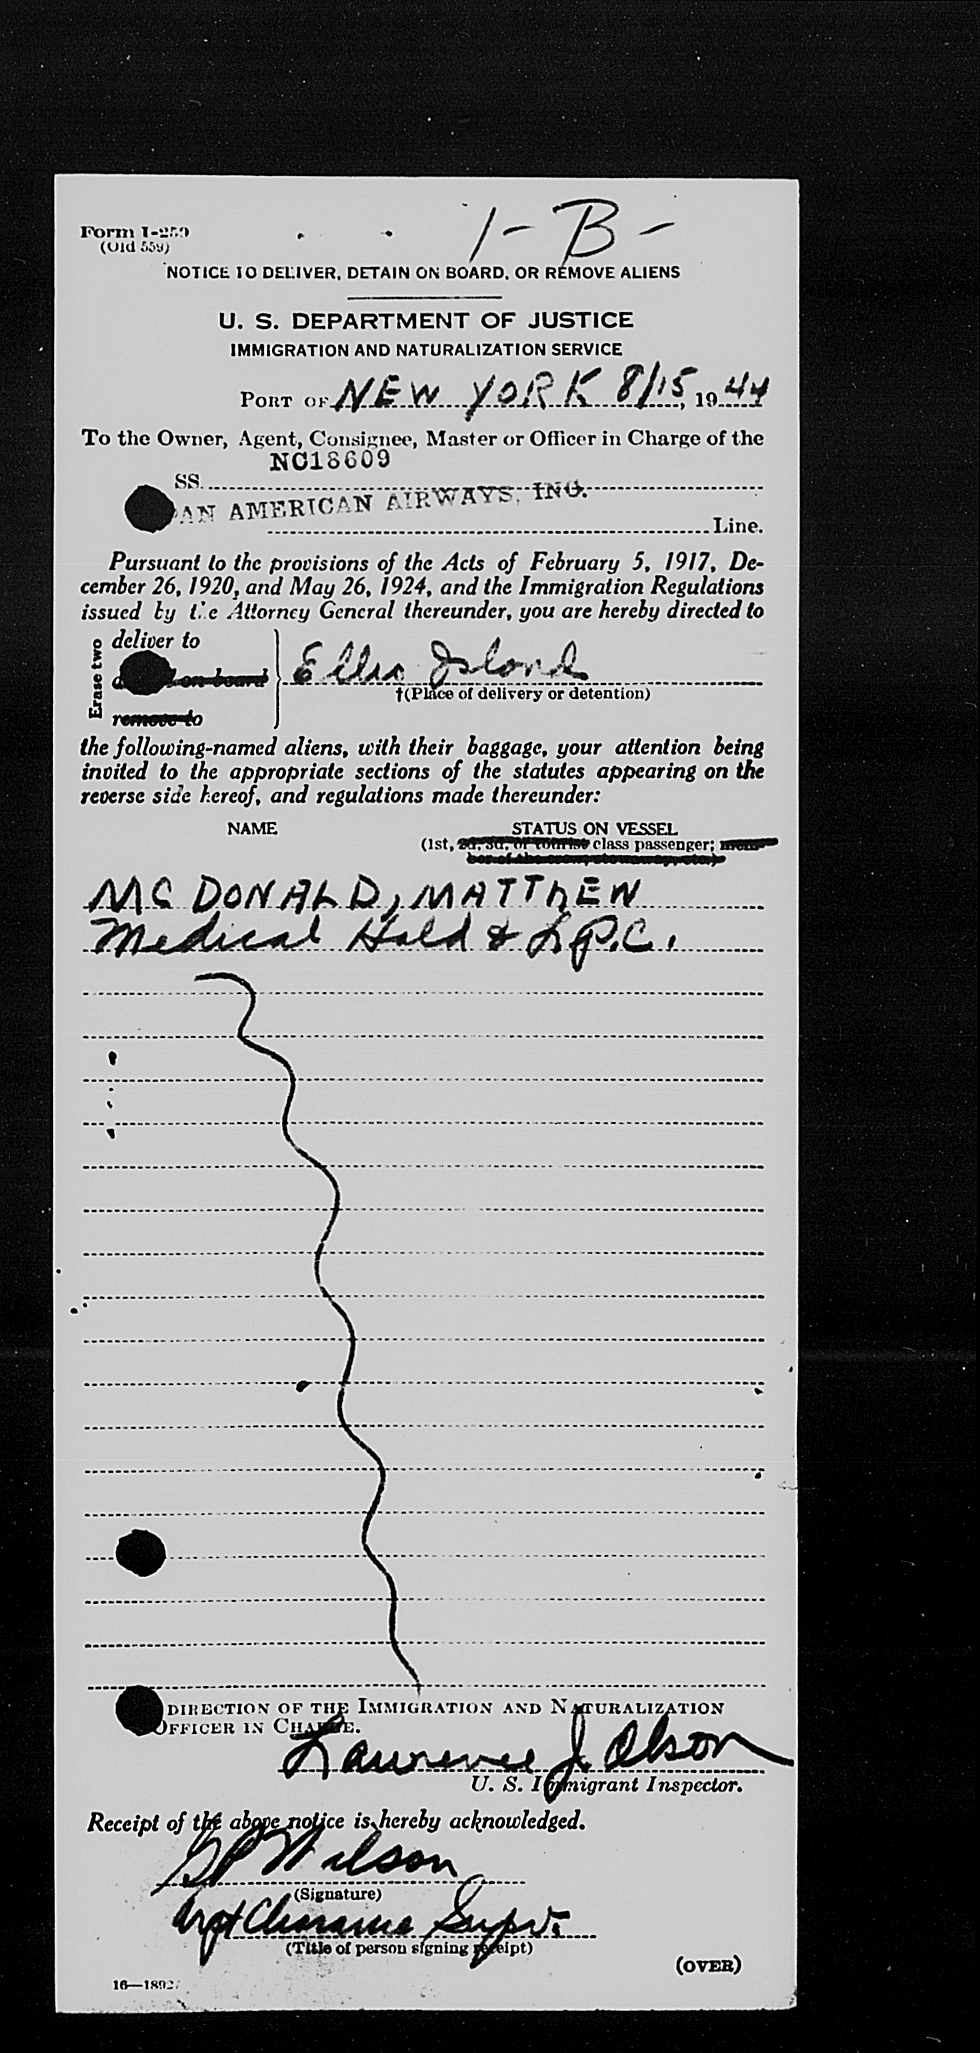 Form I-259
(Old 559)
1 - B -
NOTICE TO DELIVER, DETAIN ON BOARD, OR REMOVE ALIENS
U. S. DEPARTMENT OF JUSTICE
IMMIGRATION AND NATURALIZATION SERVICE
PORT OF NEW YORK 8/15, 1944
To the Owner, Agent, Consignee, Master or Officer in Charge of the
NC18609
SS.
AN AMERICAN AIRWAYS, INC.
Line.
Pursuant to the provisions of the Acts of February 5, 1917, De-
cember 26, 1920, and May 26, 1924, and the Immigration Regulations
issued by the Attorney General thereunder, you are hereby directed to
Erase two
deliver to
on board
remove to
Ellis Island
†(Place of delivery or detention)
the following-named aliens, with their baggage, your attention being
invited to the appropriate sections of the statutes appearing on the
reverse side hereof, and regulations made thereunder:
NAME STATUS ON VESSEL
(1st, 2d, 3d, or tourist class passenger; mem-
ber of the crew, stowaway, etc.)
MC DONALD, MATTHEW
Medical Hold & L.P.C.
DIRECTION OF THE IMMIGRATION AND NATURALIZATION
OFFICER IN CHARGE.
Laurence J. Olson
U. S. Immigrant Inspector.
Receipt of the above notice is hereby acknowledged.
Wilson
(Signature)
Arpt Clearance Supv.
(Title of person signing receipt)
(OVER)
16—1892